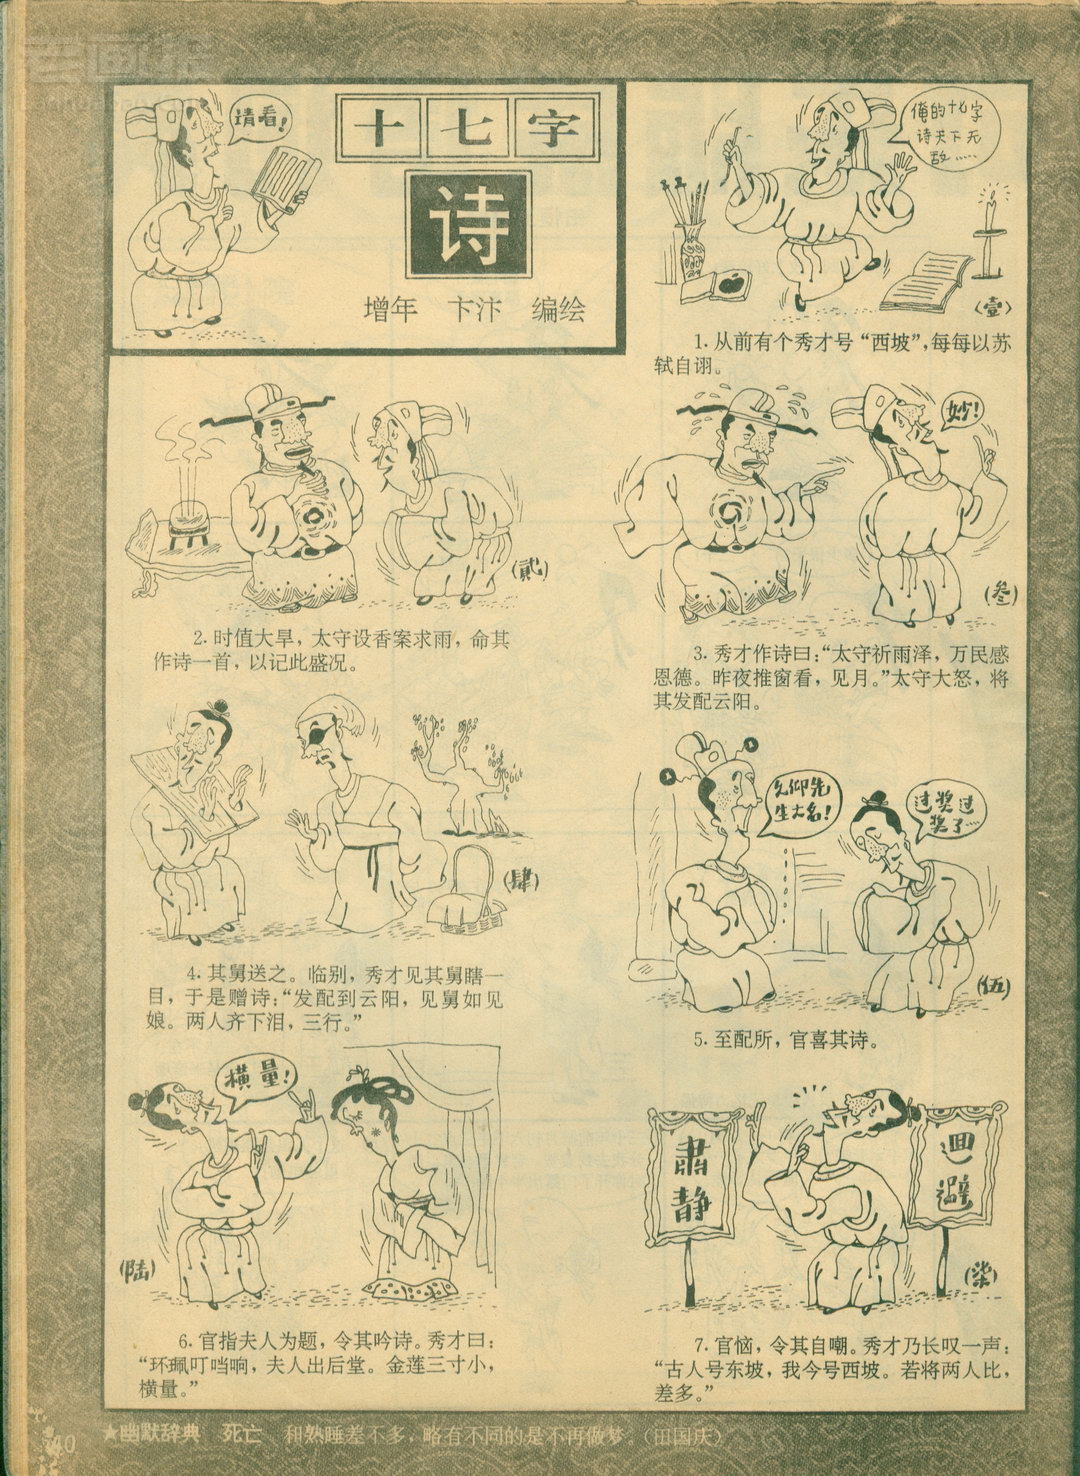 请看!
十七字
诗
增年 卞汴 编绘
俺的十七字
诗天下无
敌……
(壹)
1. 从前有个秀才号“西坡”,每每以苏
轼自诩。
(贰)
2. 时值大旱，太守设香案求雨，命其
作诗一首，以记此盛况。
妙!
(叁)
3. 秀才作诗曰:“太守祈雨泽，万民感
恩德。昨夜推窗看，见月。”太守大怒，将
其发配云阳。
(肆)
4. 其舅送之。临别，秀才见其舅瞎一
目，于是赠诗:“发配到云阳，见舅如见
娘。两人齐下泪，三行。”
久仰先
生大名!
过奖过
奖了…
(伍)
5. 至配所，官喜其诗。
横量!
(陆)
6. 官指夫人为题，令其吟诗。秀才曰:
“环珮叮当响，夫人出后堂。金莲三寸小，
横量。”
肃静
回避
(柒)
7. 官恼，令其自嘲。秀才乃长叹一声:
“古人号东坡，我今号西坡。若将两人比，
差多。”
40
★幽默辞典 死亡 和熟睡差不多，略有不同的是不再做梦。(田国庆)